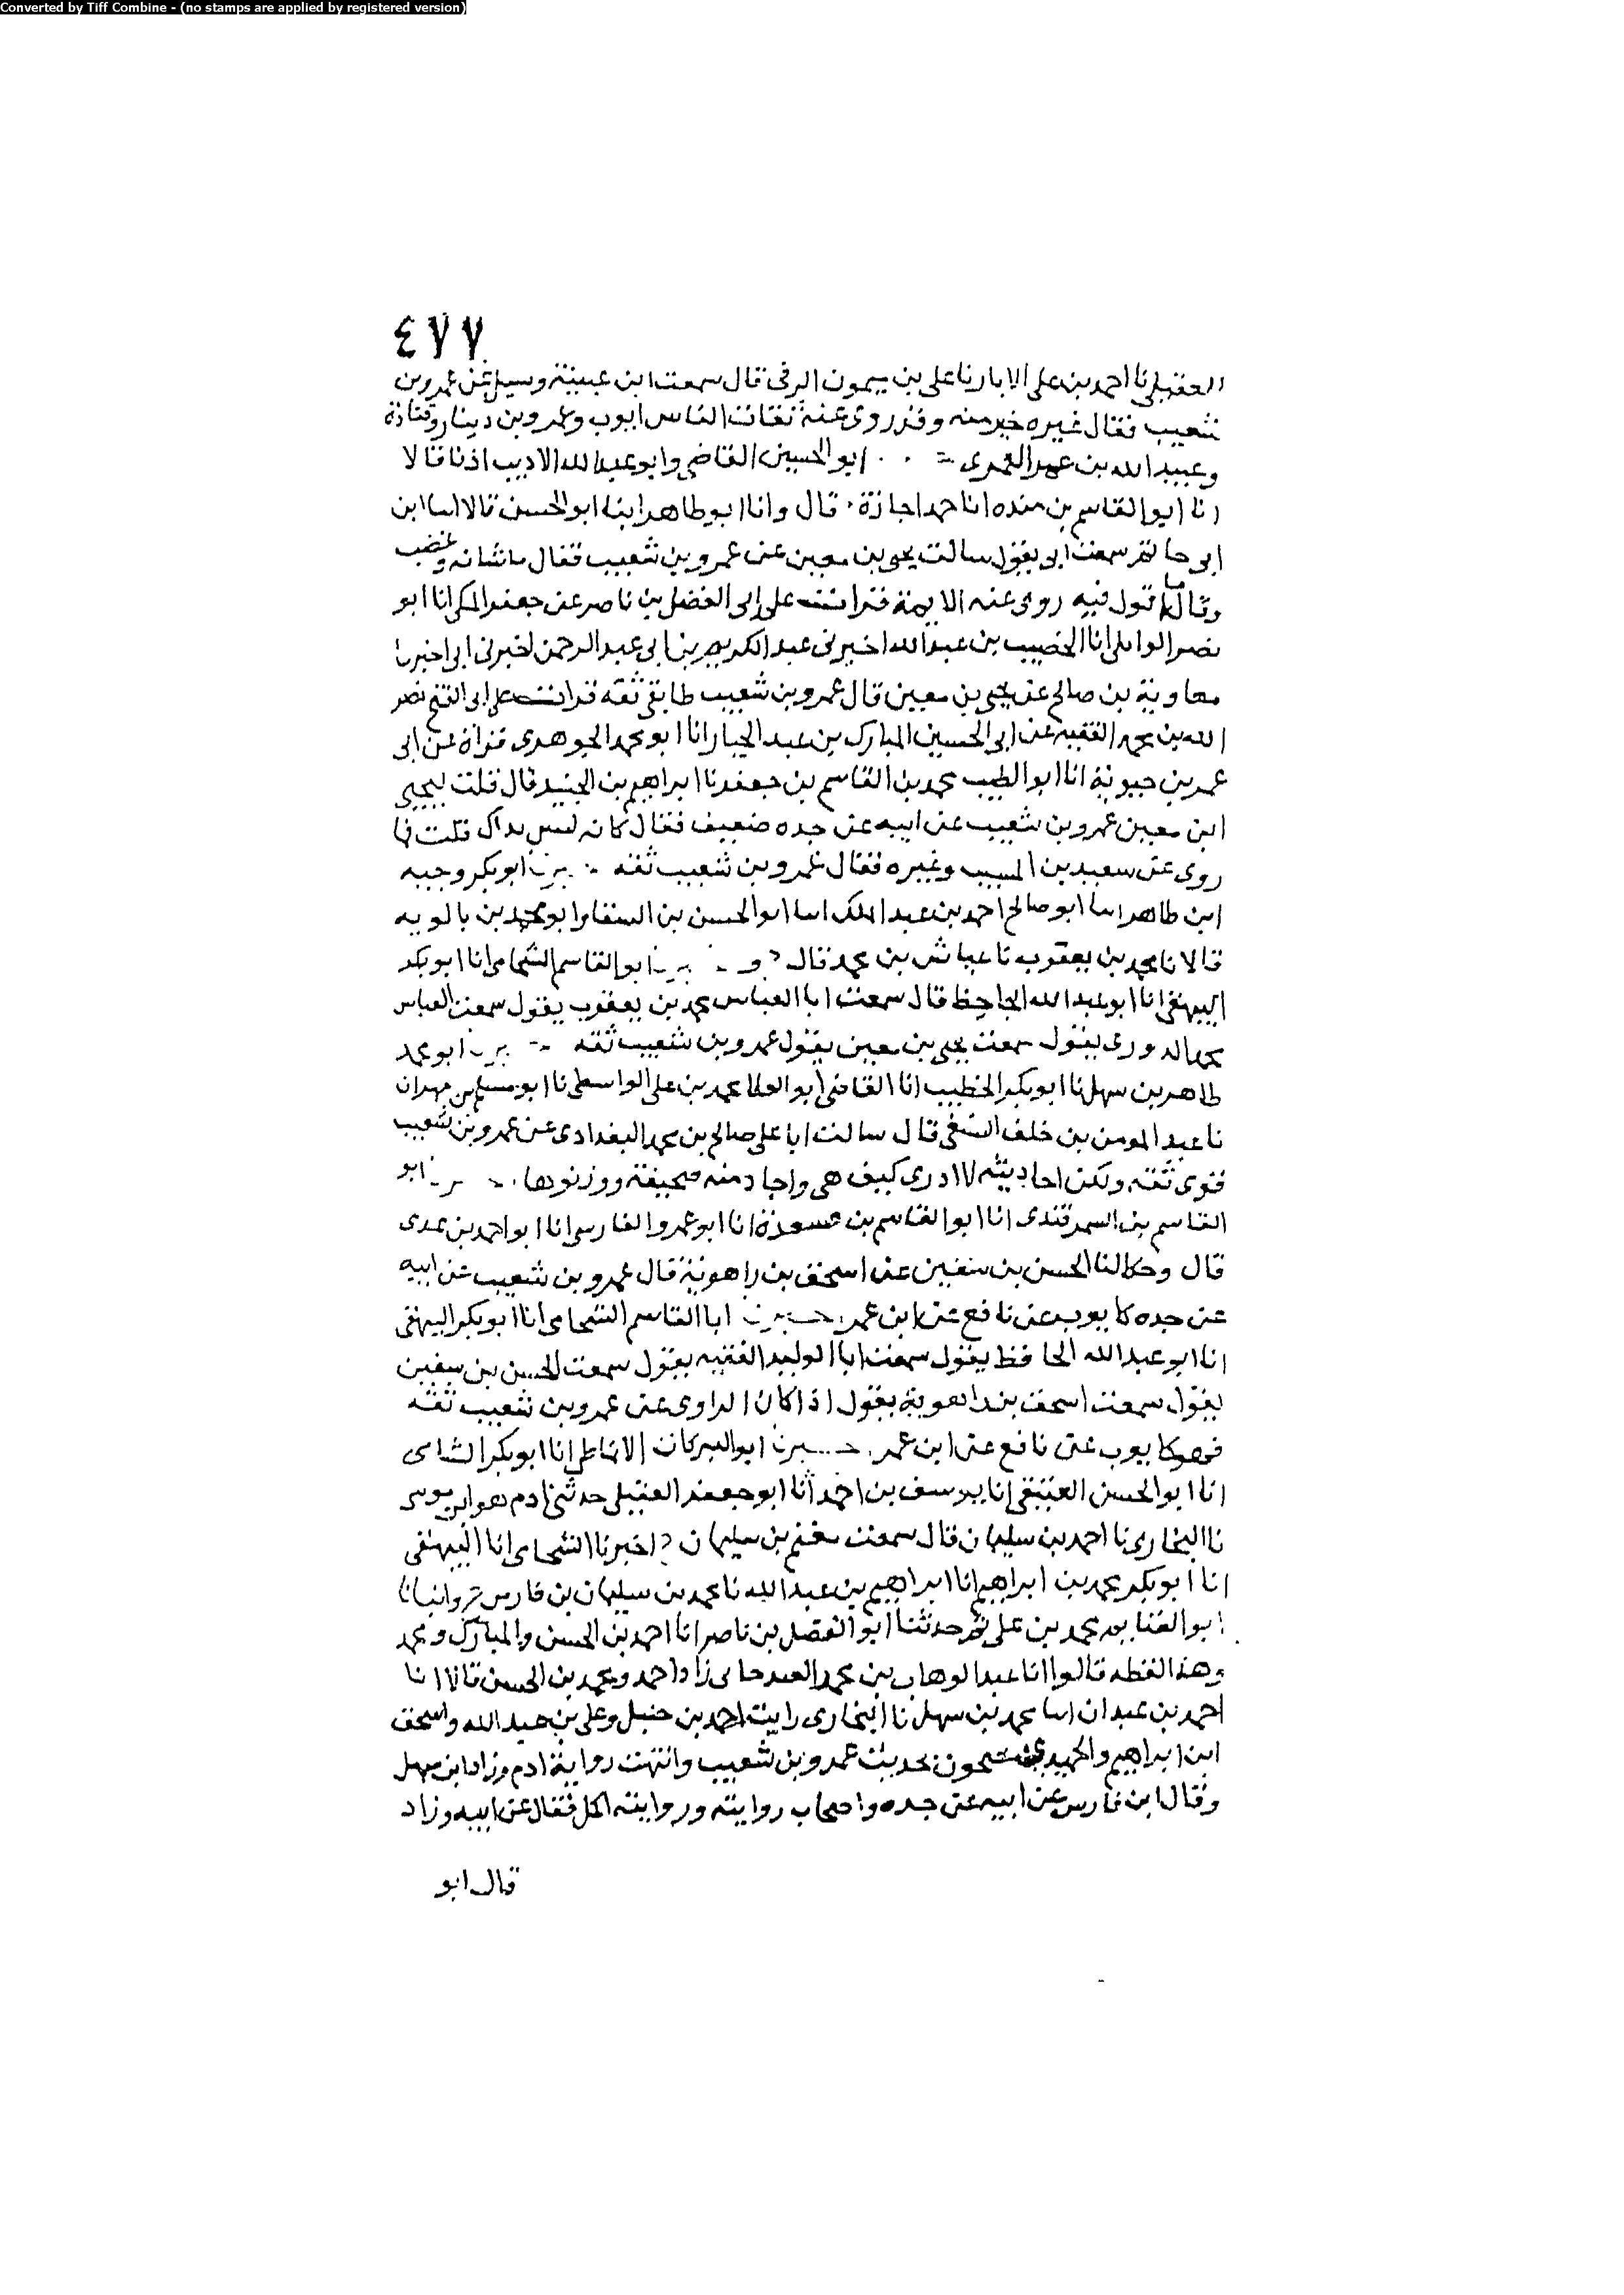 Converted by Tiff Combine - (no stamps are applied by registered version)
٤٧٧
العقيلي نا احمد بن علي الابار نا علي بن ميمون الرقي قال سمعت ابن عيينة وسيل عن عمرو بن
شعيب فقال غيره خير منه وقد روى عنه ثقات الناس ايوب وعمرو بن دينار وقتادة
وعبيد الله بن عمر العمري ابو الحسين القاضي وابو عبد الله الاديب اذنا قالا
انا ابو القاسم بن منده انا حمد اجازة قال وانا ابو طاهر انا ابو الحسن قالا انا ابن
ابي حاتم سمعت ابي يقول سالت يحيى بن معين عن عمرو بن شعيب فقال ما شانه وغضب
وقال ما اقول فيه روى عنه الايمة قرات على ابي الفضل بن ناصر عن جعفر المكي انا ابو
نصر الوايلي انا الخصيب بن عبد الله اخبرني عبد الكريم بن ابي عبد الرحمن اخبرني ابي اخبرنا
معاوية بن صالح عن يحيى بن معين قال عمرو بن شعيب طايفي ثقه قرات على ابي الفتح نصر
الله بن محمد الفقيه عن ابي الحسين المبارك بن عبد الجبار انا ابو محمد الجوهري قراة عن ابي
عمر بن حيوية انا ابو الطيب محمد بن القاسم بن جعفر نا ابراهيم بن الجنيد قال قلت ليحيى
ابن معين عمرو بن شعيب عن ابيه عن جده ضعيف فقال كانه ليس بذاك قلت فما
روى عن سعيد بن المسيب وغيره فقال عمرو بن شعيب ثقه ابو بكر وجيه
ابن طاهر انا ابو صالح احمد بن عبد الملك انا ابو الحسن بن السقا وابو محمد بن بالويه
قالا نا محمد بن يعقوب نا عباش بن محمد قال ح و ابو القاسم الشحامي انا ابو بكر
البيهقي انا ابو عبد الله الحافظ قال سمعت ابا العباس محمد بن يعقوب يقول سمعت العباس
محمد الدوري يقول سمعت يحيى بن معين يقول عمرو بن شعيب ثقه ابو محمد
طاهر بن سهل نا ابو بكر الخطيب انا القاضي ابو العلا محمد بن علي الواسطي نا ابو مسلم بن مهران
نا عبد المومن بن خلف النسفي قال سالت ابا علي صالح بن محمد البغدادي عن عمرو بن شعيب
فقوى ثقه ولكن احاديثه لا ادري كيف هي واحاد منه صحيفة ووزنوها ابو
القاسم بن السمرقندي انا ابو القاسم بن مسعدة انا ابو عمرو الفارسي انا ابو احمد بن عدي
قال وحكا لنا الحسن بن سفين عن اسحق بن راهوية قال عمرو بن شعيب عن ابيه
عن جده كايوب عن نافع عن ابن عمر ابا القاسم الشحامي انا ابو بكر البيهقي
انا ابو عبد الله الحافظ يقول سمعت ابا الوليد الفقيه يقول سمعت الحسن بن سفين
يقول سمعت اسحق بن راهوية يقول اذا كان الراوي عن عمرو بن شعيب ثقه
فهو كايوب عن نافع عن ابن عمر ابو البركات الانماطي انا ابو بكر الشامي
انا ابو الحسن العتيقي انا يوسف بن احمد انا ابو جعفر العقيلي حدثني ادم هو ابن موسى
نا البخاري نا احمد بن سليمان قال سمعت معتم بن سليمان ح اخبرنا الشحامي انا البيهقي
انا ابو بكر محمد بن ابراهيم انا ابراهيم بن عبد الله نا محمد بن سليمان بن فارس ح وانبانا
ابو الغنايم محمد بن علي ثم حدثنا ابو الفضل بن ناصر انا احمد بن الحسن والمبارك ومحمد
وهذا لفظه قالوا انا عبد الوهاب بن محمد زاد احمد ومحمد بن الحسن قالا انا
احمد بن عبدان انا محمد بن سهل نا البخاري رايت احمد بن حنبل وعلي بن عبد الله واسحق
ابن ابراهيم والحميدي يحتجون بحديث عمرو بن شعيب وانتهت رواية ادم وزاد ابن سهل
وقال ابن فارس عن ابيه عن جده واصحاب روايته وروايته اكل فقال عن ابيه وزاد
قال ابو